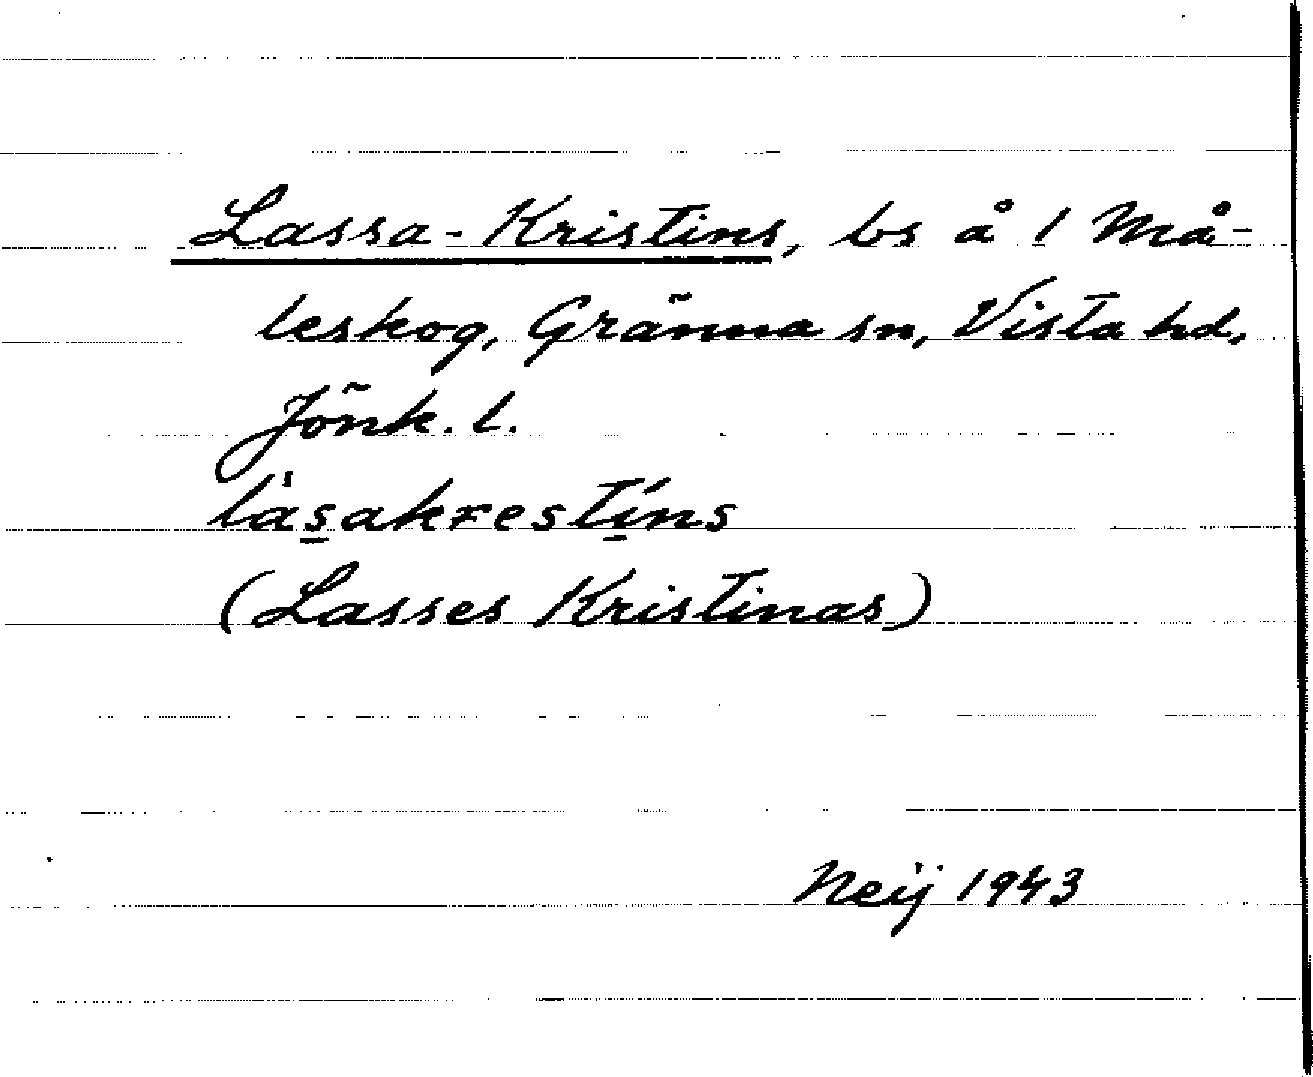 Lassa-Kristins, bs å 1 Må-
leskog, Gränna sn, Vista hd,
Jönk. l.
làs̲akrestí̲ns
(Lasses Kristinas)
Neij 1943